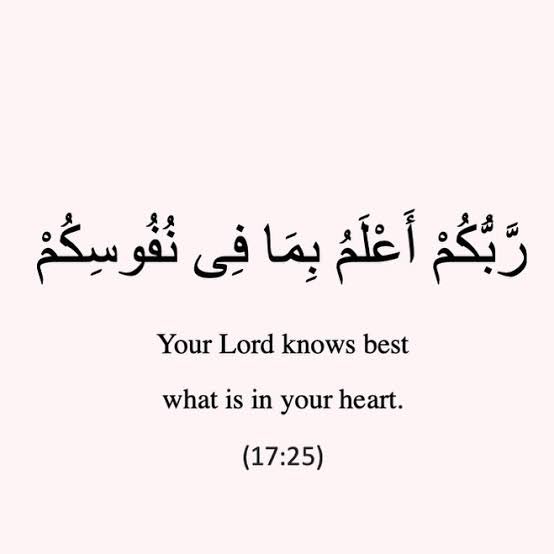 رَّبُّكُمْ أَعْلَمُ بِمَا فِى نُفُوسِكُمْ
Your Lord knows best
what is in your heart.
(17:25)